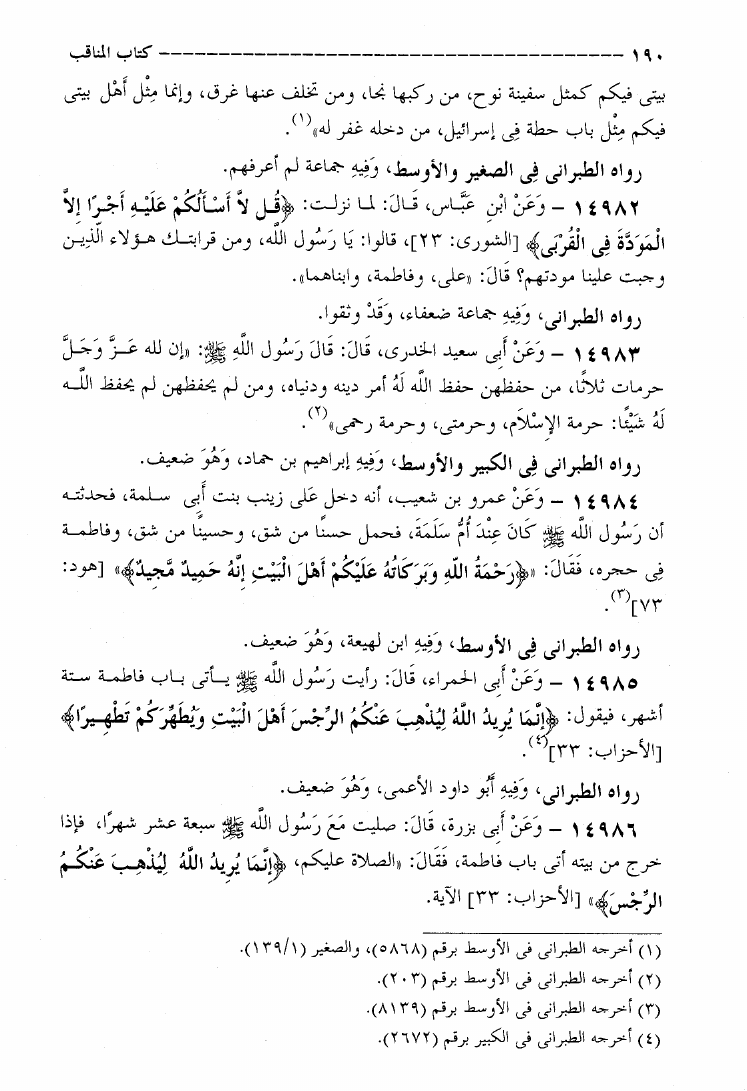 ١٩٠ ------------------------------------------- كتاب المناقب
بيتى فيكم كمثل سفينة نوح، من ركبها نجا، ومن تخلف عنها غرق، وإنما مِثْل أَهْل بيتى
فيكم مِثْل باب حطة فِى إسرائيل، من دخله غفر له»(١).
رواه الطبرانى فِى الصغير والأوسط، وَفِيهِ جماعة لم أعرفهم.
١٤٩٨٢ – وَعَنْ ابْنِ عَبَّاس، قَالَ: لما نزلت: ﴿قُل لاَّ أَسْأَلُكُمْ عَلَيْهِ أَجْرًا إِلاَّ
الْمَوَدَّةَ فِى الْقُرْبَى﴾ [الشورى: ٢٣]، قالوا: يَا رَسُول الله، ومن قرابتك هؤلاء الَّذِين
وجبت علينا مودتهم؟ قَالَ: «على، وفاطمة، وابناهما».
رواه الطبرانى، وَفِيهِ جماعة ضعفاء، وَقَدْ وثقوا.
١٤٩٨٣ – وَعَنْ أَبِى سعيد الخدرى، قَالَ: قَالَ رَسُول اللَّه ﷺ: «إن لله عَزَّ وَجَلَّ
حرمات ثلاثًا، من حفظهن حفظ اللَّه لَهُ أمر دينه ودنياه، ومن لم يحفظهن لم يحفظ اللَّه
لَهُ شَيْئًا: حرمة الإِسْلاَم، وحرمتى، وحرمة رحمى»(٢).
رواه الطبرانى فِى الكبير والأوسط، وَفِيهِ إبراهيم بن حماد، وَهُوَ ضعيف.
١٤٩٨٤ – وَعَنْ عمرو بن شعيب، أنه دخل عَلَى زينب بنت أَبِى سلمة، فحدثته
أن رَسُول اللَّه ﷺ كَانَ عِنْدَ أُمُّ سَلَمَةَ، فحمل حسنًا من شق، وحسينًا من شق، وفاطمة
فِى حجره، فَقَالَ: «﴿رَحْمَةُ اللَّهِ وَبَرَكَاتُهُ عَلَيْكُمْ أَهْلَ الْبَيْتِ إِنَّهُ حَمِيدٌ مَّجِيدٌ﴾» [هود:
٧٣](٣).
رواه الطبرانى فِى الأوسط، وَفِيهِ ابن لهيعة، وَهُوَ ضعيف.
١٤٩٨٥ – وَعَنْ أَبِى الحمراء، قَالَ: رأيت رَسُول اللَّه ﷺ يأتى باب فاطمة ستة
أشهر، فيقول: ﴿إِنَّمَا يُرِيدُ اللَّهُ لِيُذْهِبَ عَنْكُمُ الرِّجْسَ أَهْلَ الْبَيْتِ وَيُطَهِّرَكُمْ تَطْهِيرًا﴾
[الأحزاب: ٣٣](٤).
رواه الطبرانى، وَفِيهِ أَبُو داود الأعمى، وَهُوَ ضعيف.
١٤٩٨٦ – وَعَنْ أَبِى بزرة، قَالَ: صليت مَعَ رَسُول اللَّه ﷺ سبعة عشر شهرًا، فإذا
خرج من بيته أتى باب فاطمة، فَقَالَ: «الصلاة عليكم، ﴿إِنَّمَا يُرِيدُ اللَّهُ لِيُذْهِبَ عَنْكُمُ
الرِّجْسَ﴾» [الأحزاب: ٣٣] الآية.
(١) أخرجه الطبرانى فى الأوسط برقم (٥٨٦٨)، والصغير (١٣٩/١).
(٢) أخرجه الطبرانى فى الأوسط برقم (٢٠٣).
(٣) أخرجه الطبرانى فى الأوسط برقم (٨١٣٩).
(٤) أخرجه الطبرانى فى الكبير برقم (٢٦٧٢).